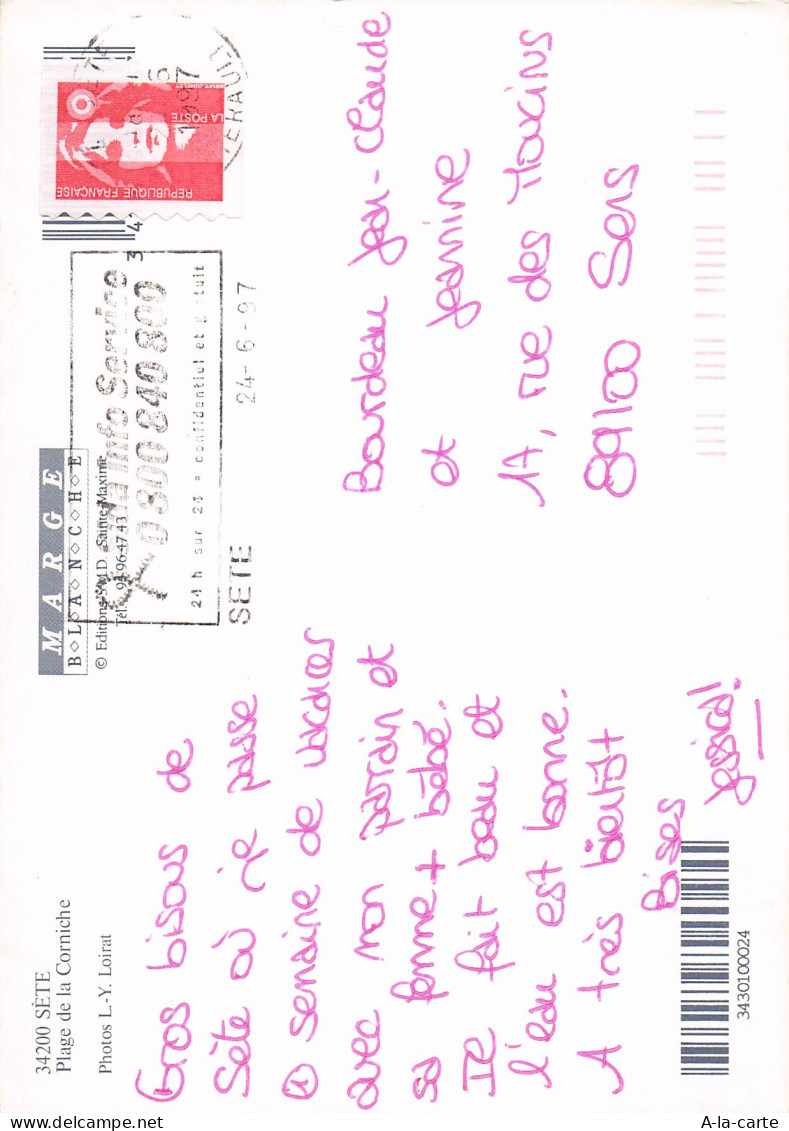 34200 SÈTE
Plage de la Corniche
Photos L.-Y. Loirat
Gros bisous de
Sète où je passe
1 semaine de vacances
avec mon parrain et
sa femme + bébé.
Il fait beau et
l'eau est bonne.
A très bientôt
Bises
Jessica!
3430100024
MARGE
B◇L◇A◇N◇C◇H◇E
© Editions S.M.D. Sainte-Maxime
Tél. 94 96 47 43
Sida Info Service
0 800 840 800
24 h sur 24 • confidentiel et gratuit
SETE
24-6-97
34
1997
RÉPUBLIQUE FRANÇAISE
LA POSTE
Bourdeau Jean-Claude
et Jeannine
17, rue des Moulins
89100 Sens
A-la-carte